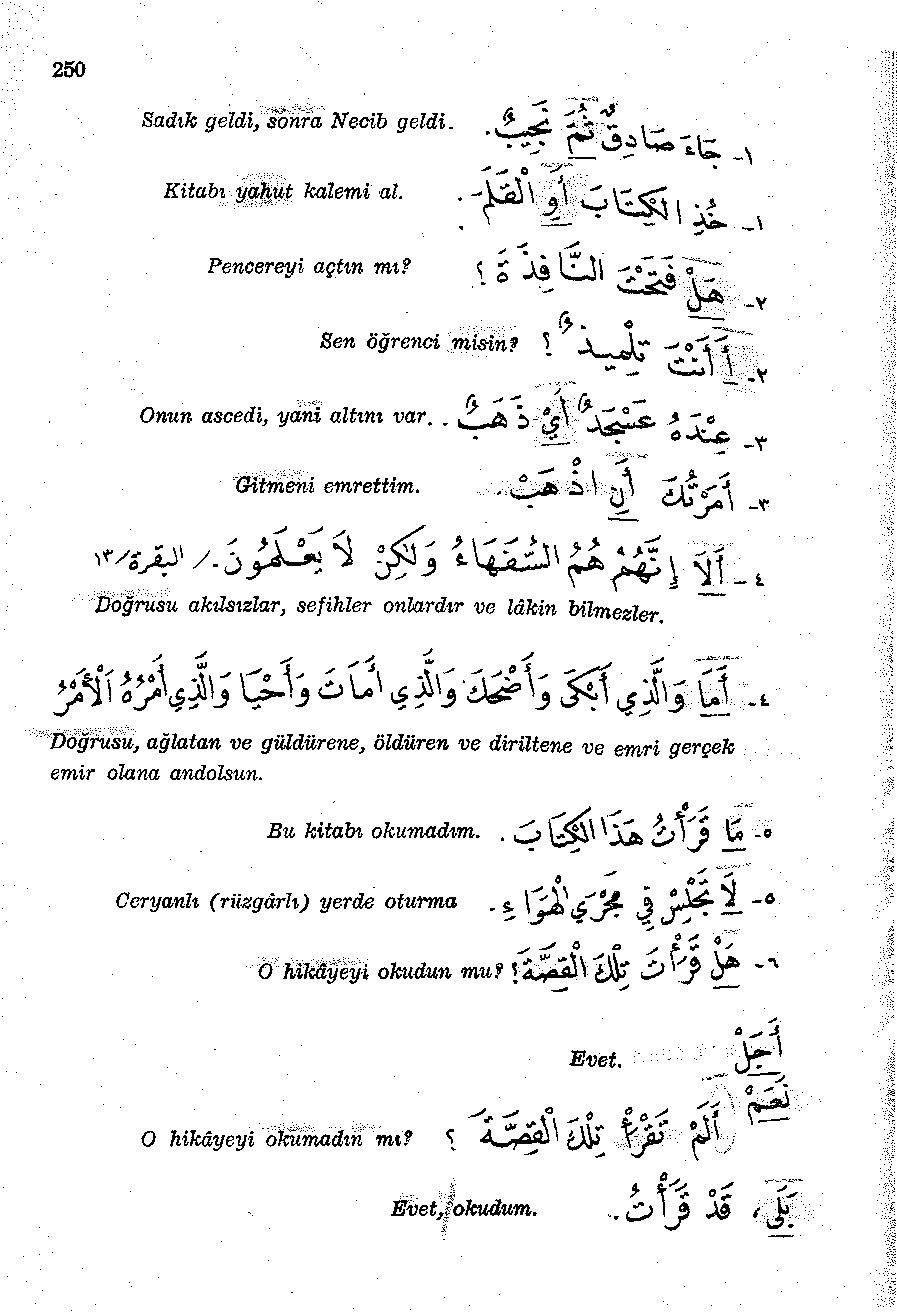 250
Sadık geldi, sonra Necib geldi. ١- جَاءَ صَادِقٌ ثُمَّ نَجِيبٌ.
Kitabı yahut kalemi al. ١- خُذِ الْكِتَابَ أَوِ الْقَلَمَ.
Pencereyi açtın mı? ٢- هَلْ فَتَحْتَ النَّافِذَةَ ؟
Sen öğrenci misin? ٢- أَأَنْتَ تِلْمِيذٌ ؟
Onun ascedi, yani altını var. ٣- عِنْدَهُ عَسْجَدٌ أَيْ ذَهَبٌ.
Gitmeni emrettim. ٣- أَمَرْتُكَ أَنِ اذْهَبْ.
٤- أَلَا إِنَّهُمْ هُمُ السُّفَهَاءُ وَلٰكِنْ لَا يَعْلَمُونَ./ البقرة/١٣
Doğrusu akılsızlar, sefihler onlardır ve lâkin bilmezler.
٤- أَمَا وَالَّذِي أَبْكَى وَأَضْحَكَ وَالَّذِي أَمَاتَ وَأَحْيَا وَالَّذِي أَمْرُهُ الْأَمْرُ
Doğrusu, ağlatan ve güldürene, öldüren ve diriltene ve emri gerçek
emir olana andolsun.
Bu kitabı okumadım. ٥- مَا قَرَأْتُ هَذَا الْكِتَابَ.
Ceryanlı (rüzgârlı) yerde oturma ٥- لَا تَجْلِسْ فِي مَجْرَي الْهَوَاءِ.
O hikâyeyi okudun mu? ٦- هَلْ قَرَأْتَ تِلْكَ الْقِصَّةَ؟
Evet. أَجَلْ
نَعَمْ
O hikâyeyi okumadın mı? أَلَمْ تَقْرَأْ تِلْكَ الْقِصَّةَ ؟
Evet, okudum. بَلَى، قَدْ قَرَأْتُ.